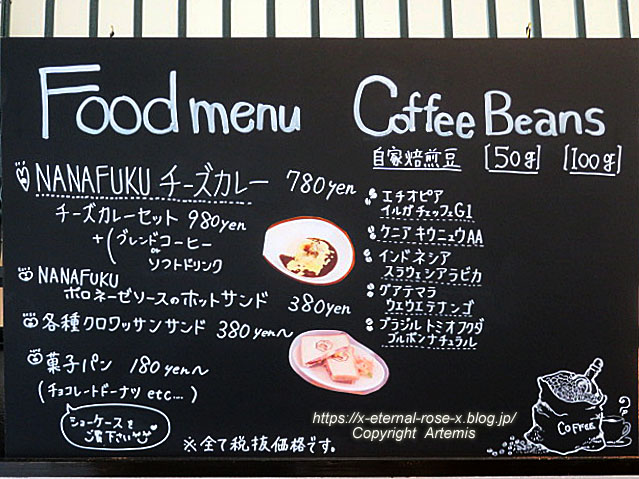 Food menu
NANAFUKU チーズカレー 780yen
チーズカレーセット 980yen
+(ブレンドコーヒー
or
ソフトドリンク
NANAFUKU
ボロネーゼソースのホットサンド 380yen
各種クロワッサンサンド 380yen〜
菓子パン 180yen〜
(チョコレートドーナツ etc....)
ショーケースを
ご覧下さい
※全て税抜価格です。
Coffee Beans
自家焙煎豆 [50g] [100g]
エチオピア
イルガチェッフェG1
ケニア キウニュウAA
インドネシア
スラウェシアラビカ
グアテマラ
ウエウエテナンゴ
ブラジル トミオフクダ
ブルボンナチュラル
COFFEE
https://x-eternal-rose-x.blog.jp/
Copyright Artemis